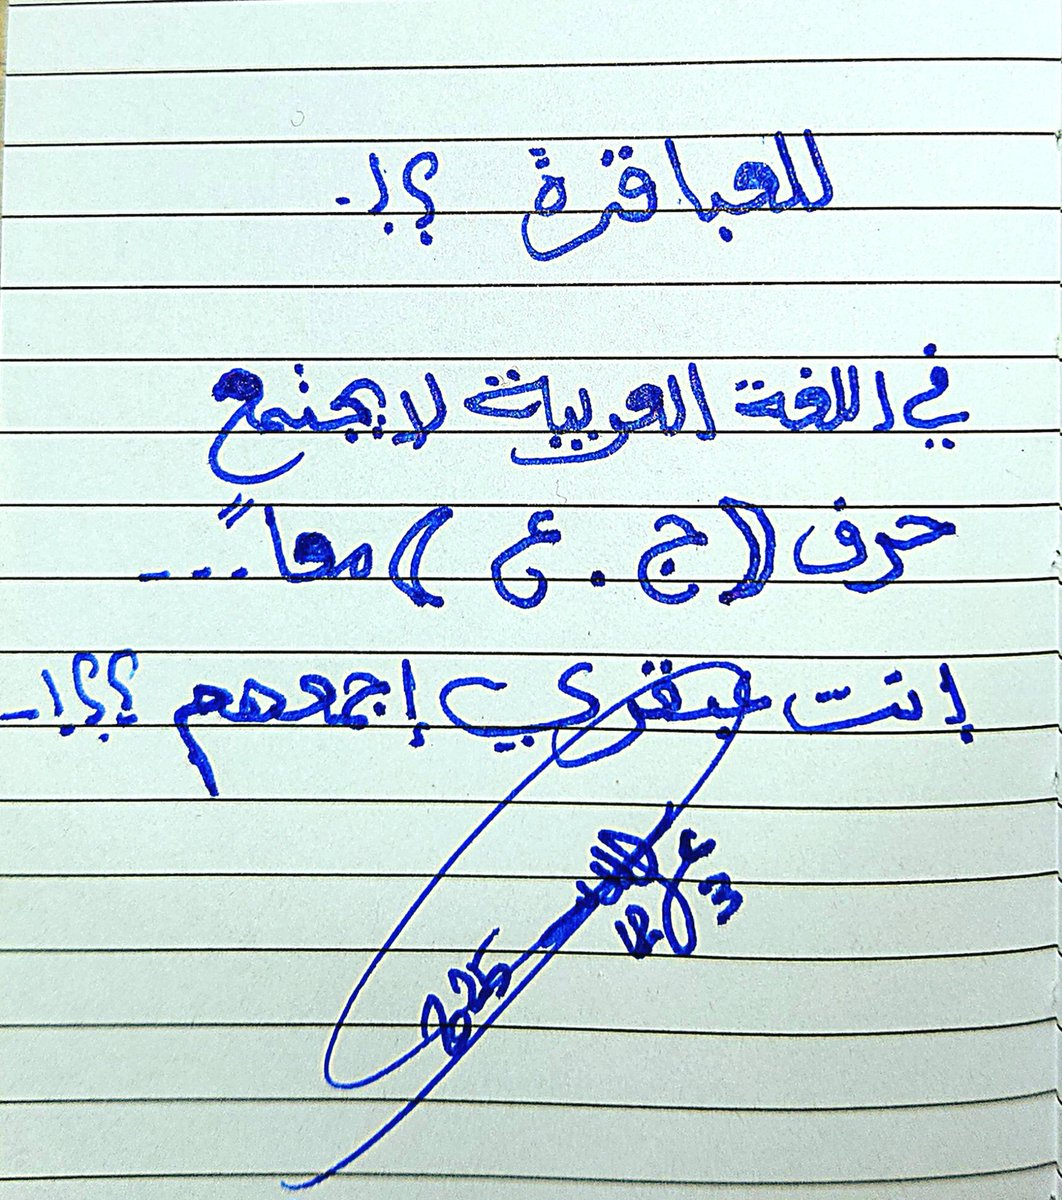 للعباقرة ؟!.
في اللغة العربية لا يجتمع
حرف ((ج . ع )) معاً ...
إنت عبقري إجمعهم ؟؟!..
3
2025